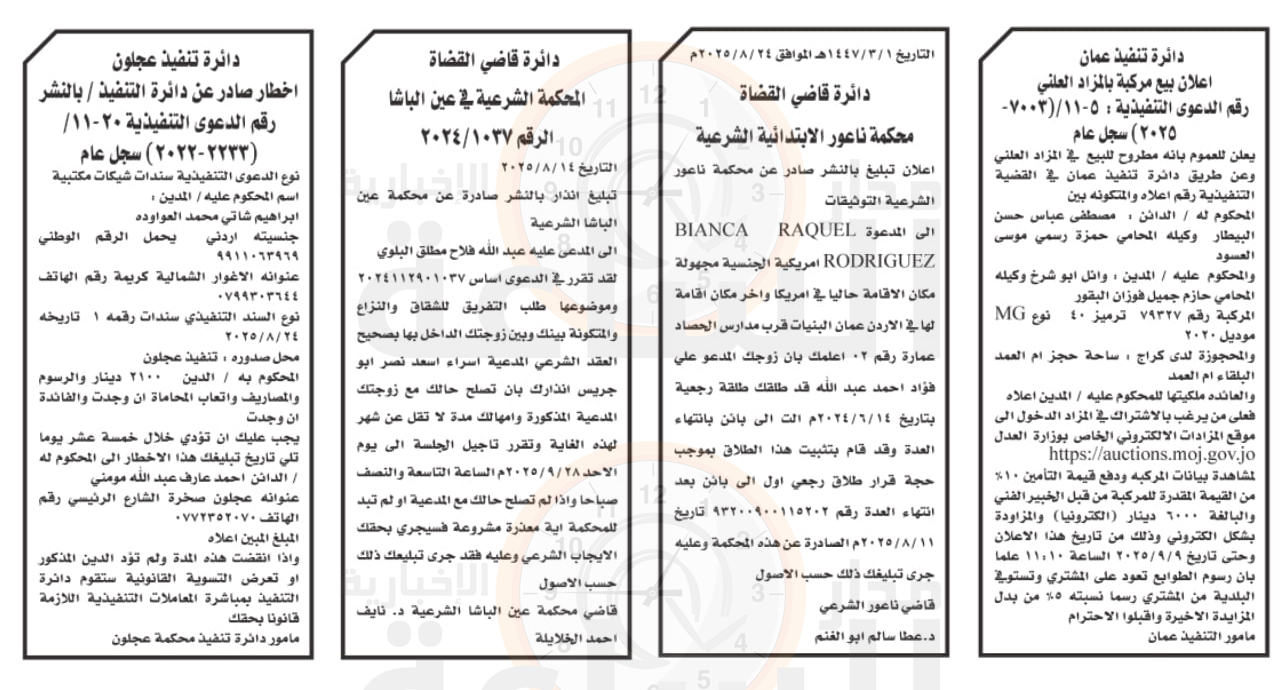 دائرة تنفيذ عمان
اعلان بيع مركبة بالمزاد العلني
رقم الدعوى التنفيذية : ٥-١١/(٧٠٠٣-
٢٠٢٥) سجل عام
يعلن للعموم بانه مطروح للبيع في المزاد العلني
وعن طريق دائرة تنفيذ عمان في القضية
التنفيذية رقم اعلاه والمتكونه بين
المحكوم له / الدائن : مصطفى عباس حسن
البيطار وكيله المحامي حمزة رسمي موسى
العسود
والمحكوم عليه / المدين : وائل ابو شرخ وكيله
المحامي حازم جميل فوزان البقور
المركبة رقم ٧٩٣٢٧ ترميز ٤٠ نوع MG
موديل ٢٠٢٠
والمحجوزة لدى كراج : ساحة حجز ام العمد
البلقاء ام العمد
والعائده ملكيتها للمحكوم عليه / المدين اعلاه
فعلى من يرغب بالاشتراك في المزاد الدخول الى
موقع المزادات الالكتروني الخاص بوزارة العدل
https://auctions.moj.gov.jo
لمشاهدة بيانات المركبه ودفع قيمة التأمين ١٠٪
من القيمة المقدرة للمركبة من قبل الخبير الفني
والبالغة ٦٠٠٠ دينار (الكترونيا) والمزاودة
بشكل الكتروني وذلك من تاريخ هذا الاعلان
وحتى تاريخ ٢٠٢٥/٩/٩ الساعة ١١:١٠ علما
بان رسوم الطوابع تعود على المشتري وتستوفي
البلدية من المشتري رسما نسبته ٥٪ من بدل
المزايدة الاخيرة واقبلوا الاحترام
مامور التنفيذ عمان
التاريخ ١٤٤٧/٣/١هـ الموافق ٢٠٢٥/٨/٢٤م
دائرة قاضي القضاة
محكمة ناعور الابتدائية الشرعية
اعلان تبليغ بالنشر صادر عن محكمة ناعور
الشرعية التوثيقات
الى المدعوة BIANCA RAQUEL
RODRIGUEZ امريكية الجنسية مجهولة
مكان الاقامة حاليا في امريكا واخر مكان اقامة
لها في الاردن عمان البنيات قرب مدارس الحصاد
عمارة رقم ٠٢ اعلمك بان زوجك المدعو علي
فؤاد احمد عبد الله قد طلقك طلقة رجعية
بتاريخ ٢٠٢٤/٦/١٤م الت الى بائن بانتهاء
العدة وقد قام بتثبيت هذا الطلاق بموجب
حجة قرار طلاق رجعي اول الى بائن بعد
انتهاء العدة رقم ٩٣٢٠٠٩٠٠١١٥٢٠٢ تاريخ
٢٠٢٥/٨/١١م الصادرة عن هذه المحكمة وعليه
جرى تبليغك ذلك حسب الاصول
قاضي ناعور الشرعي
د.عطا سالم ابو الغنم
دائرة قاضي القضاة
المحكمة الشرعية في عين الباشا
الرقم ٢٠٢٤/١٠٣٧
التاريخ ٢٠٢٥/٨/١٤
تبليغ انذار بالنشر صادرة عن محكمة عين
الباشا الشرعية
الى المدعى عليه عبد الله فلاح مطلق البلوي
لقد تقرر في الدعوى اساس ٢٠٢٤١١٢٩٠١٠٣٧
وموضوعها طلب التفريق للشقاق والنزاع
والمتكونة بينك وبين زوجتك الداخل بها بصحيح
العقد الشرعي المدعية اسراء اسعد نصر ابو
جريس انذارك بان تصلح حالك مع زوجتك
المدعية المذكورة وامهالك مدة لا تقل عن شهر
لهذه الغاية وتقرر تاجيل الجلسة الى يوم
الاحد ٢٠٢٥/٩/٢٨م الساعة التاسعة والنصف
صباحا واذا لم تصلح حالك مع المدعية او لم تبد
للمحكمة اية معذرة مشروعة فسيجري بحقك
الايجاب الشرعي وعليه فقد جرى تبليغك ذلك
حسب الاصول
قاضي محكمة عين الباشا الشرعية د. نايف
احمد الخلايلة
دائرة تنفيذ عجلون
اخطار صادر عن دائرة التنفيذ / بالنشر
رقم الدعوى التنفيذية ٢٠-١١/
(٢٢٣٣-٢٠٢٢) سجل عام
نوع الدعوى التنفيذية سندات شيكات مكتبية
اسم المحكوم عليه/ المدين :
ابراهيم شاتي محمد العواوده
جنسيته اردني يحمل الرقم الوطني
٩٩١١٠٦٣٩٦٩
عنوانه الاغوار الشمالية كريمة رقم الهاتف
٠٧٩٩٣٠٣٦٤٤
نوع السند التنفيذي سندات رقمه ١ تاريخه
٢٠٢٥/٨/٢٤
محل صدوره : تنفيذ عجلون
المحكوم به / الدين ٢١٠٠ دينار والرسوم
والمصاريف واتعاب المحاماة ان وجدت والفائدة
ان وجدت
يجب عليك ان تؤدي خلال خمسة عشر يوما
تلي تاريخ تبليغك هذا الاخطار الى المحكوم له
/ الدائن احمد عارف عبد الله مومني
عنوانه عجلون صخرة الشارع الرئيسي رقم
الهاتف ٠٧٧٢٣٥٢٠٧٠
المبلغ المبين اعلاه
واذا انقضت هذه المدة ولم تؤد الدين المذكور
او تعرض التسوية القانونية ستقوم دائرة
التنفيذ بمباشرة المعاملات التنفيذية اللازمة
قانونا بحقك
مامور دائرة تنفيذ محكمة عجلون